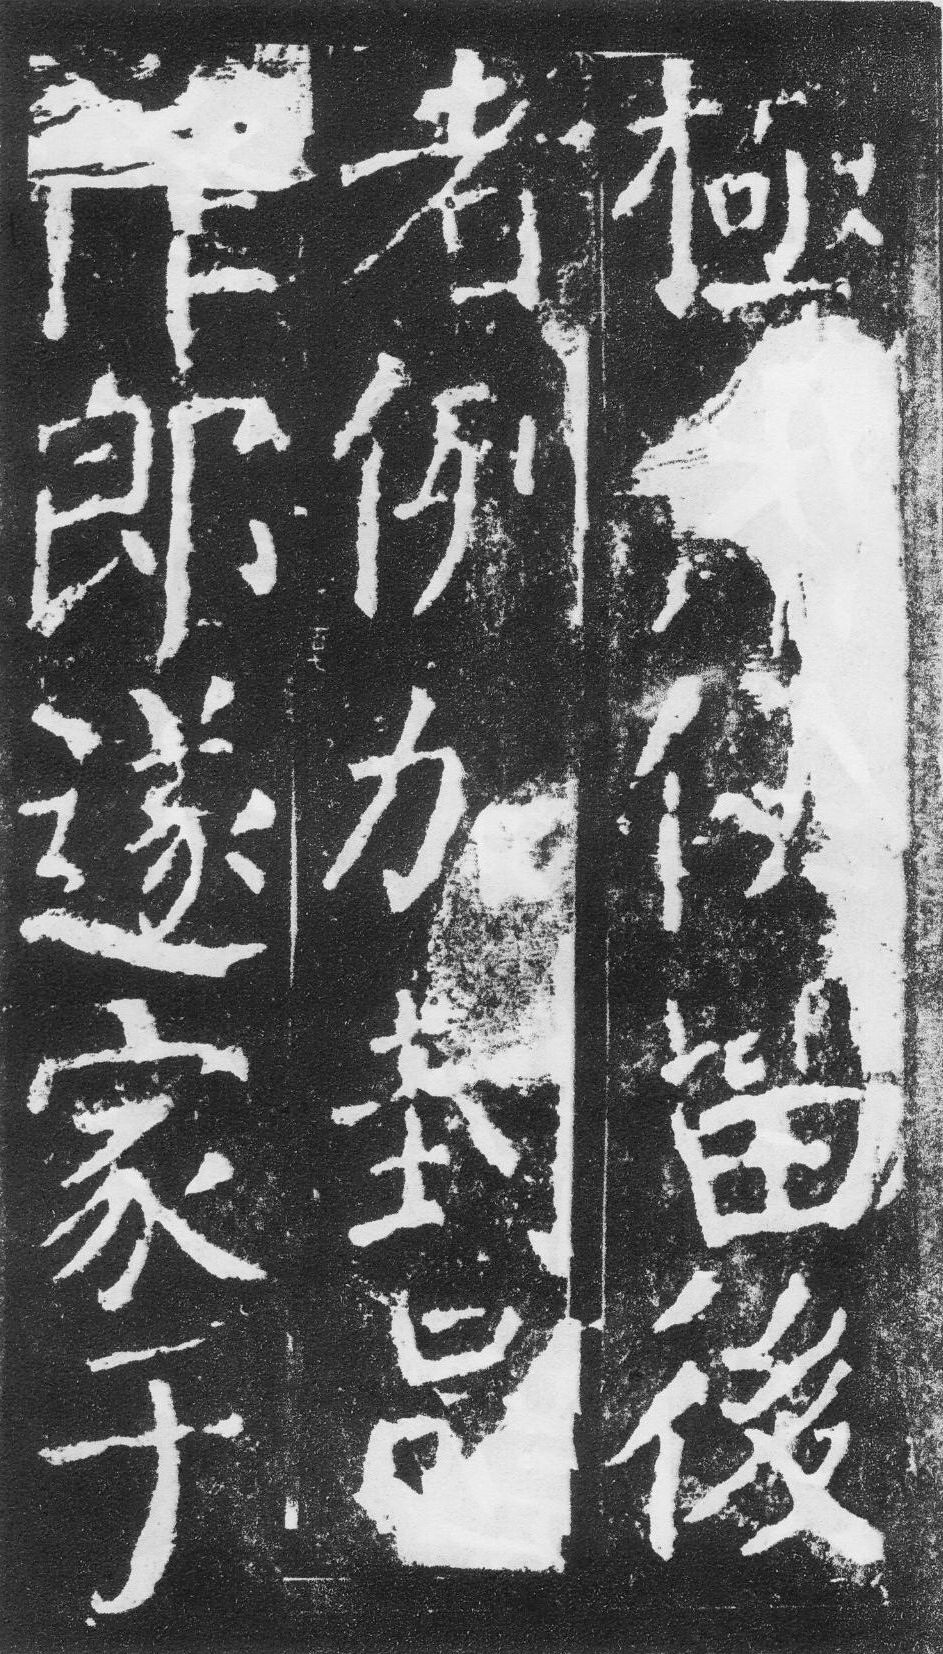 極留後
者例加封邑
作郎遂家于